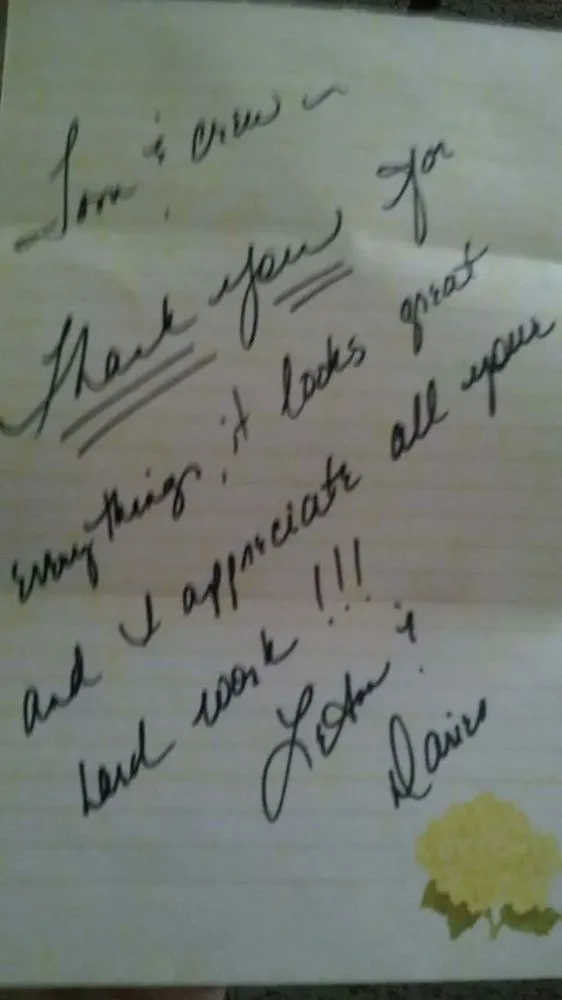 Tom & crew ~
Thank you for
everything, it looks great
and I appreciate all your
hard work !!!
LeAnn &